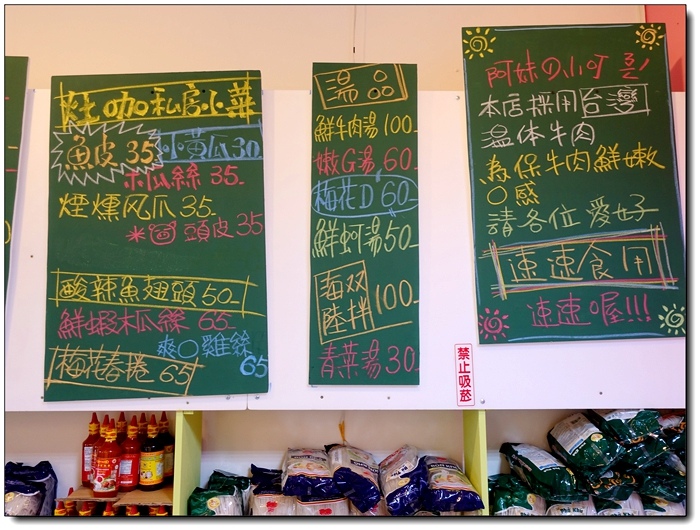 灶咖私房小菜
魚皮 35
小黃瓜 30
木瓜絲 35.
煙燻风爪 35.
*滷頭皮 35
酸辣魚翅頭 50-
鮮蝦木瓜絲 65
爽口雞絲 65
梅花春捲 65
湯品
鮮牛肉湯 100-
嫩G湯 60-
梅花D 60-
鮮蚵湯 50-
海陸双拌 100-
青菜湯 30-
阿妹の小叮
本店採用台灣
温体牛肉
為保牛肉鮮嫩
口感
請各位愛好
速速食用
速速喔!!!
禁止吸菸